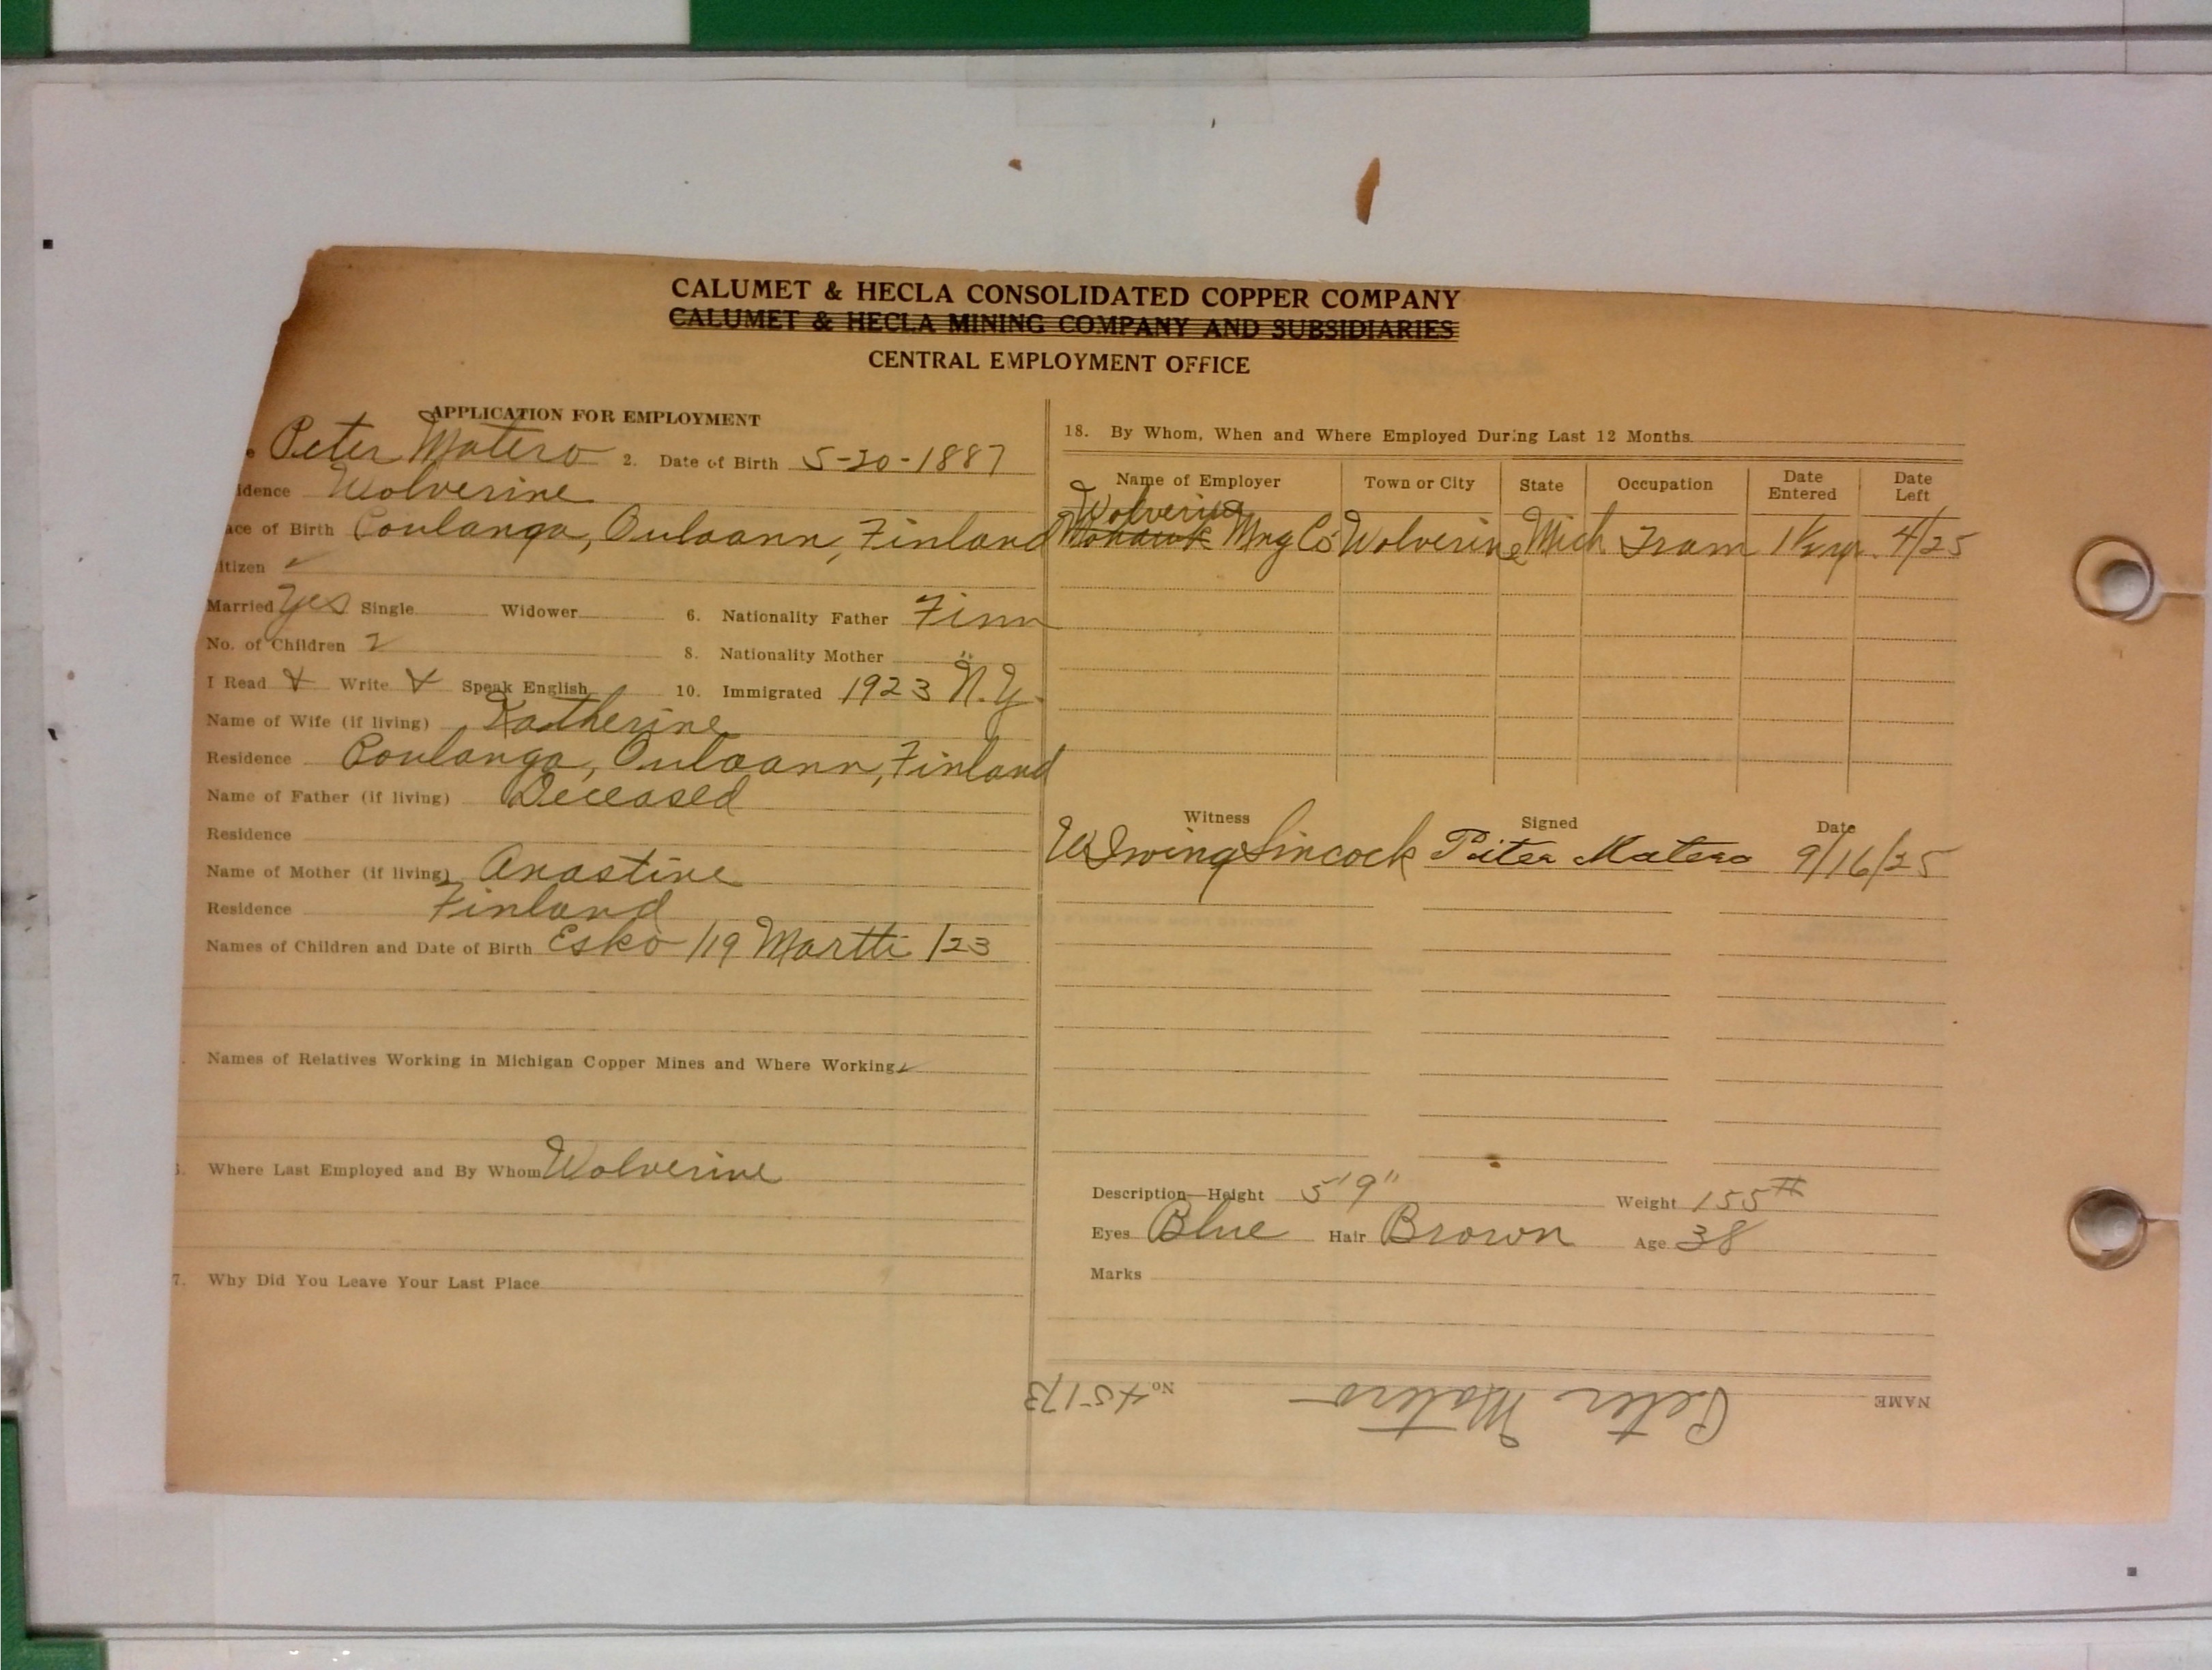 CALUMET & HECLA CONSOLIDATED COPPER COMPANY
CALUMET & HECLA MINING COMPANY AND SUBSIDIARIES
CENTRAL EMPLOYMENT OFFICE
APPLICATION FOR EMPLOYMENT
e Peter Matero 2. Date of Birth 5-20-1887
idence Wolverine
ace of Birth Poulanga, Ouloann, Finland
itizen
Married Yes Single Widower 6. Nationality Father Finn
No. of Children 2 8. Nationality Mother "
I Read Write Speak English 10. Immigrated 1923 N.Y.
Name of Wife (if living) Katherine
Residence Poulanga, Ouloann, Finland
Name of Father (if living) Deceased
Residence
Name of Mother (if living) Anastine
Residence Finland
Names of Children and Date of Birth Esko /19 Martti /23
Names of Relatives Working in Michigan Copper Mines and Where Working
Where Last Employed and By Whom Wolverine
7. Why Did You Leave Your Last Place
18. By Whom, When and Where Employed During Last 12 Months
Name of Employer Town or City State Occupation Date Entered Date Left
Wolverine
Mohawk Mng Co Wolverine Mich Tram 1½ yr. 4/25
Witness Signed Date
W Irving Sincock Piter Matero 9/16/25
Description—Height 5'9" Weight 155#
Eyes Blue Hair Brown Age 38
Marks
NAME Peter Matero No 45173